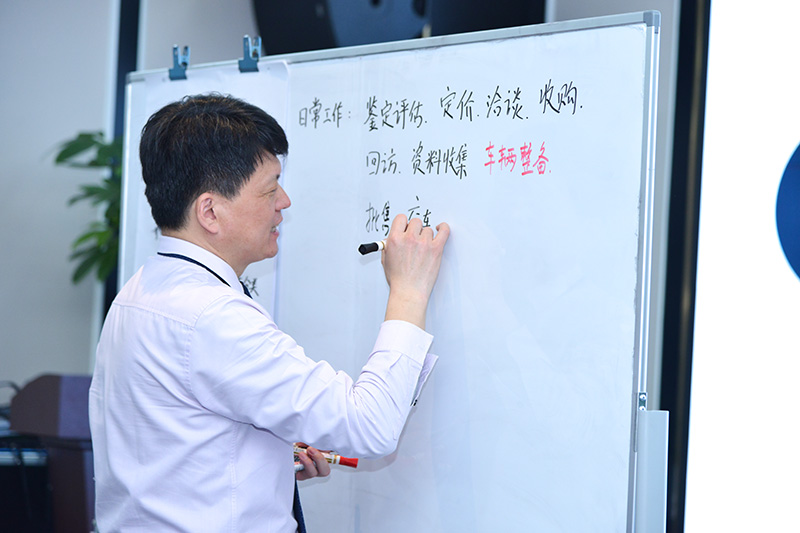 日常工作: 鉴定评估、定价、洽谈、收购、
回访、资料收集 车辆整备、
批售